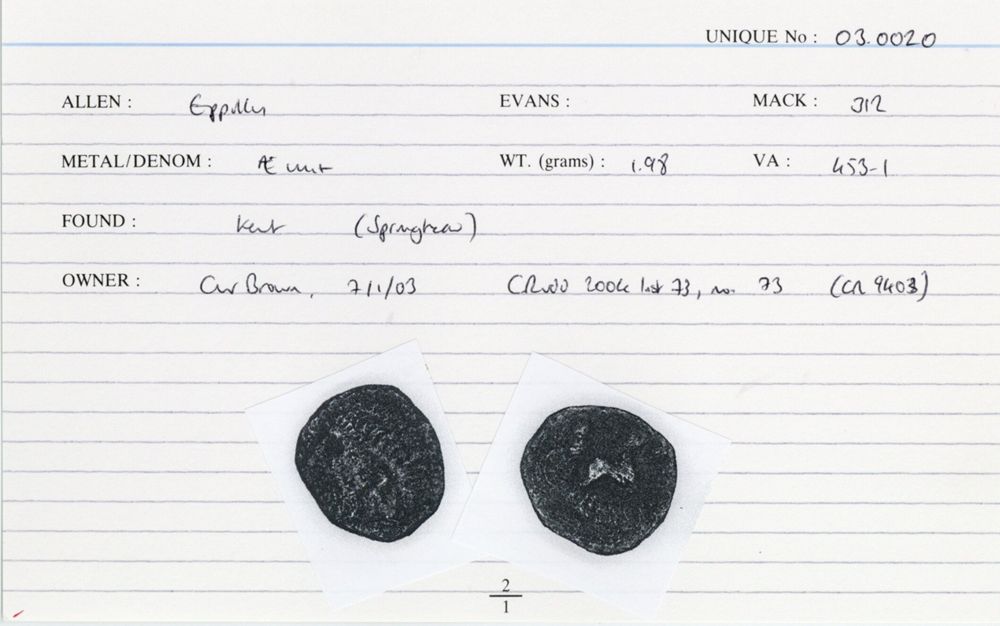 UNIQUE No : 03.0020
ALLEN : Eppillus EVANS : MACK : 312
METAL/DENOM : Æ unit WT. (grams) : 1.98 VA : 453-1
FOUND : Kent (Springhead)
OWNER : Brown, 7/1/03 list 73, no. 73 (CR 9403)
2
1